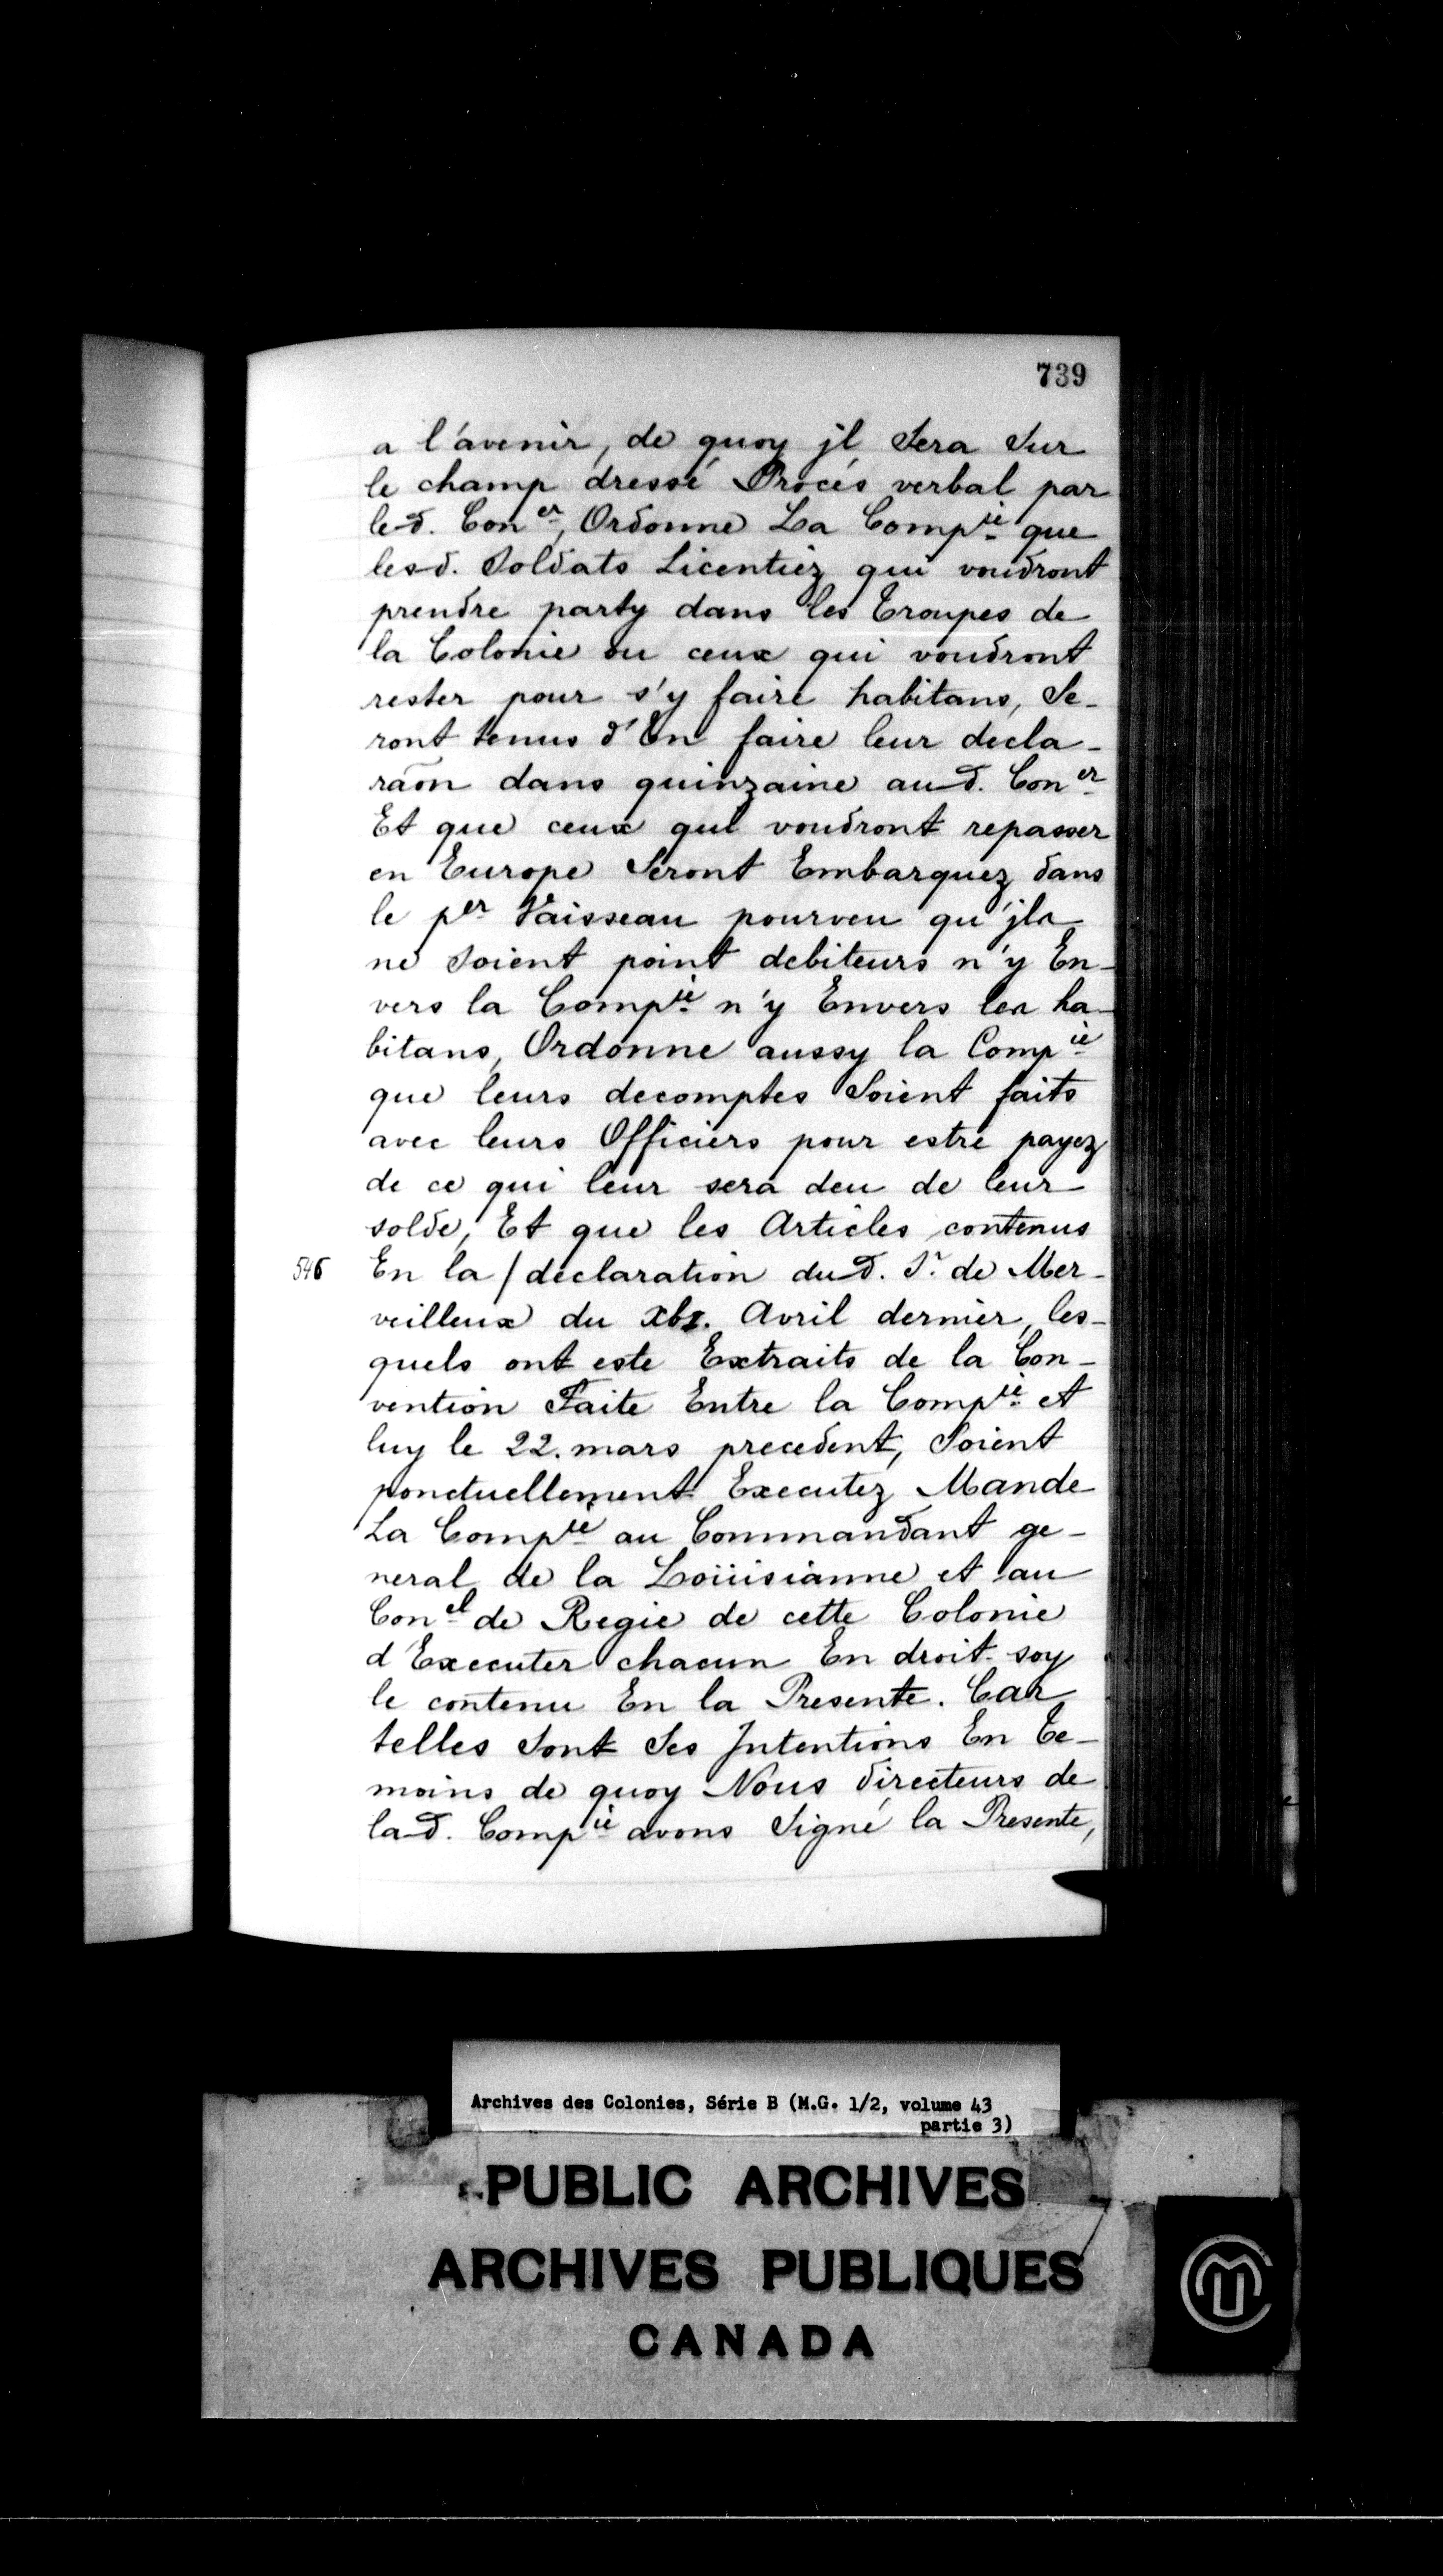 739
a l'avenir, de quoy jl Sera Sur
le champ dressé Procés verbal par
led. Con^er, Ordonne La Comp^ie que
lesd. Soldats Licentiéz qui voudront
prendre party dans les Troupes de
la Colonie ou ceux qui voudront
rester pour s'y faire habitans, Se-
ront tenus d'En faire leur decla-
rãon dans quinzaine aud. Con^er
Et que ceux qui voudront repasser
en Europe Seront Embarquez dans
le p^er Vaisseau pourveu qu'jls
ne soient point debiteurs n'y En-
vers la Comp^ie n'y Envers les ha-
bitans, Ordonne aussy la Comp^ie
que leurs decomptes Soient faits
avec leurs Officiers pour estre payez
de ce qui leur sera deu de leur
solde, Et que les Articles contenus
546 En la / declaration dud. S^r. de Mer-
veilleux du xbi. Avril dernier, les-
quels ont este Extraits de la Con-
vention Faite Entre la Comp^ie et
luy le 22. mars precedent, Soient
ponctuellement Executez Mande
La Comp^ie au Commandant ge-
neral de la Loüisianne et au
Con^el de Regie de cette Colonie
d'Executer chacun En droit soy
le contenu En la Presente. Car
telles sont Ses Jntentions En Te-
moins de quoy Nous directeurs de
lad. Comp^ie avons Signé la Presente,
Archives des Colonies, Série B (M.G. 1/2, volume 43
partie 3)
PUBLIC ARCHIVES
ARCHIVES PUBLIQUES
CANADA